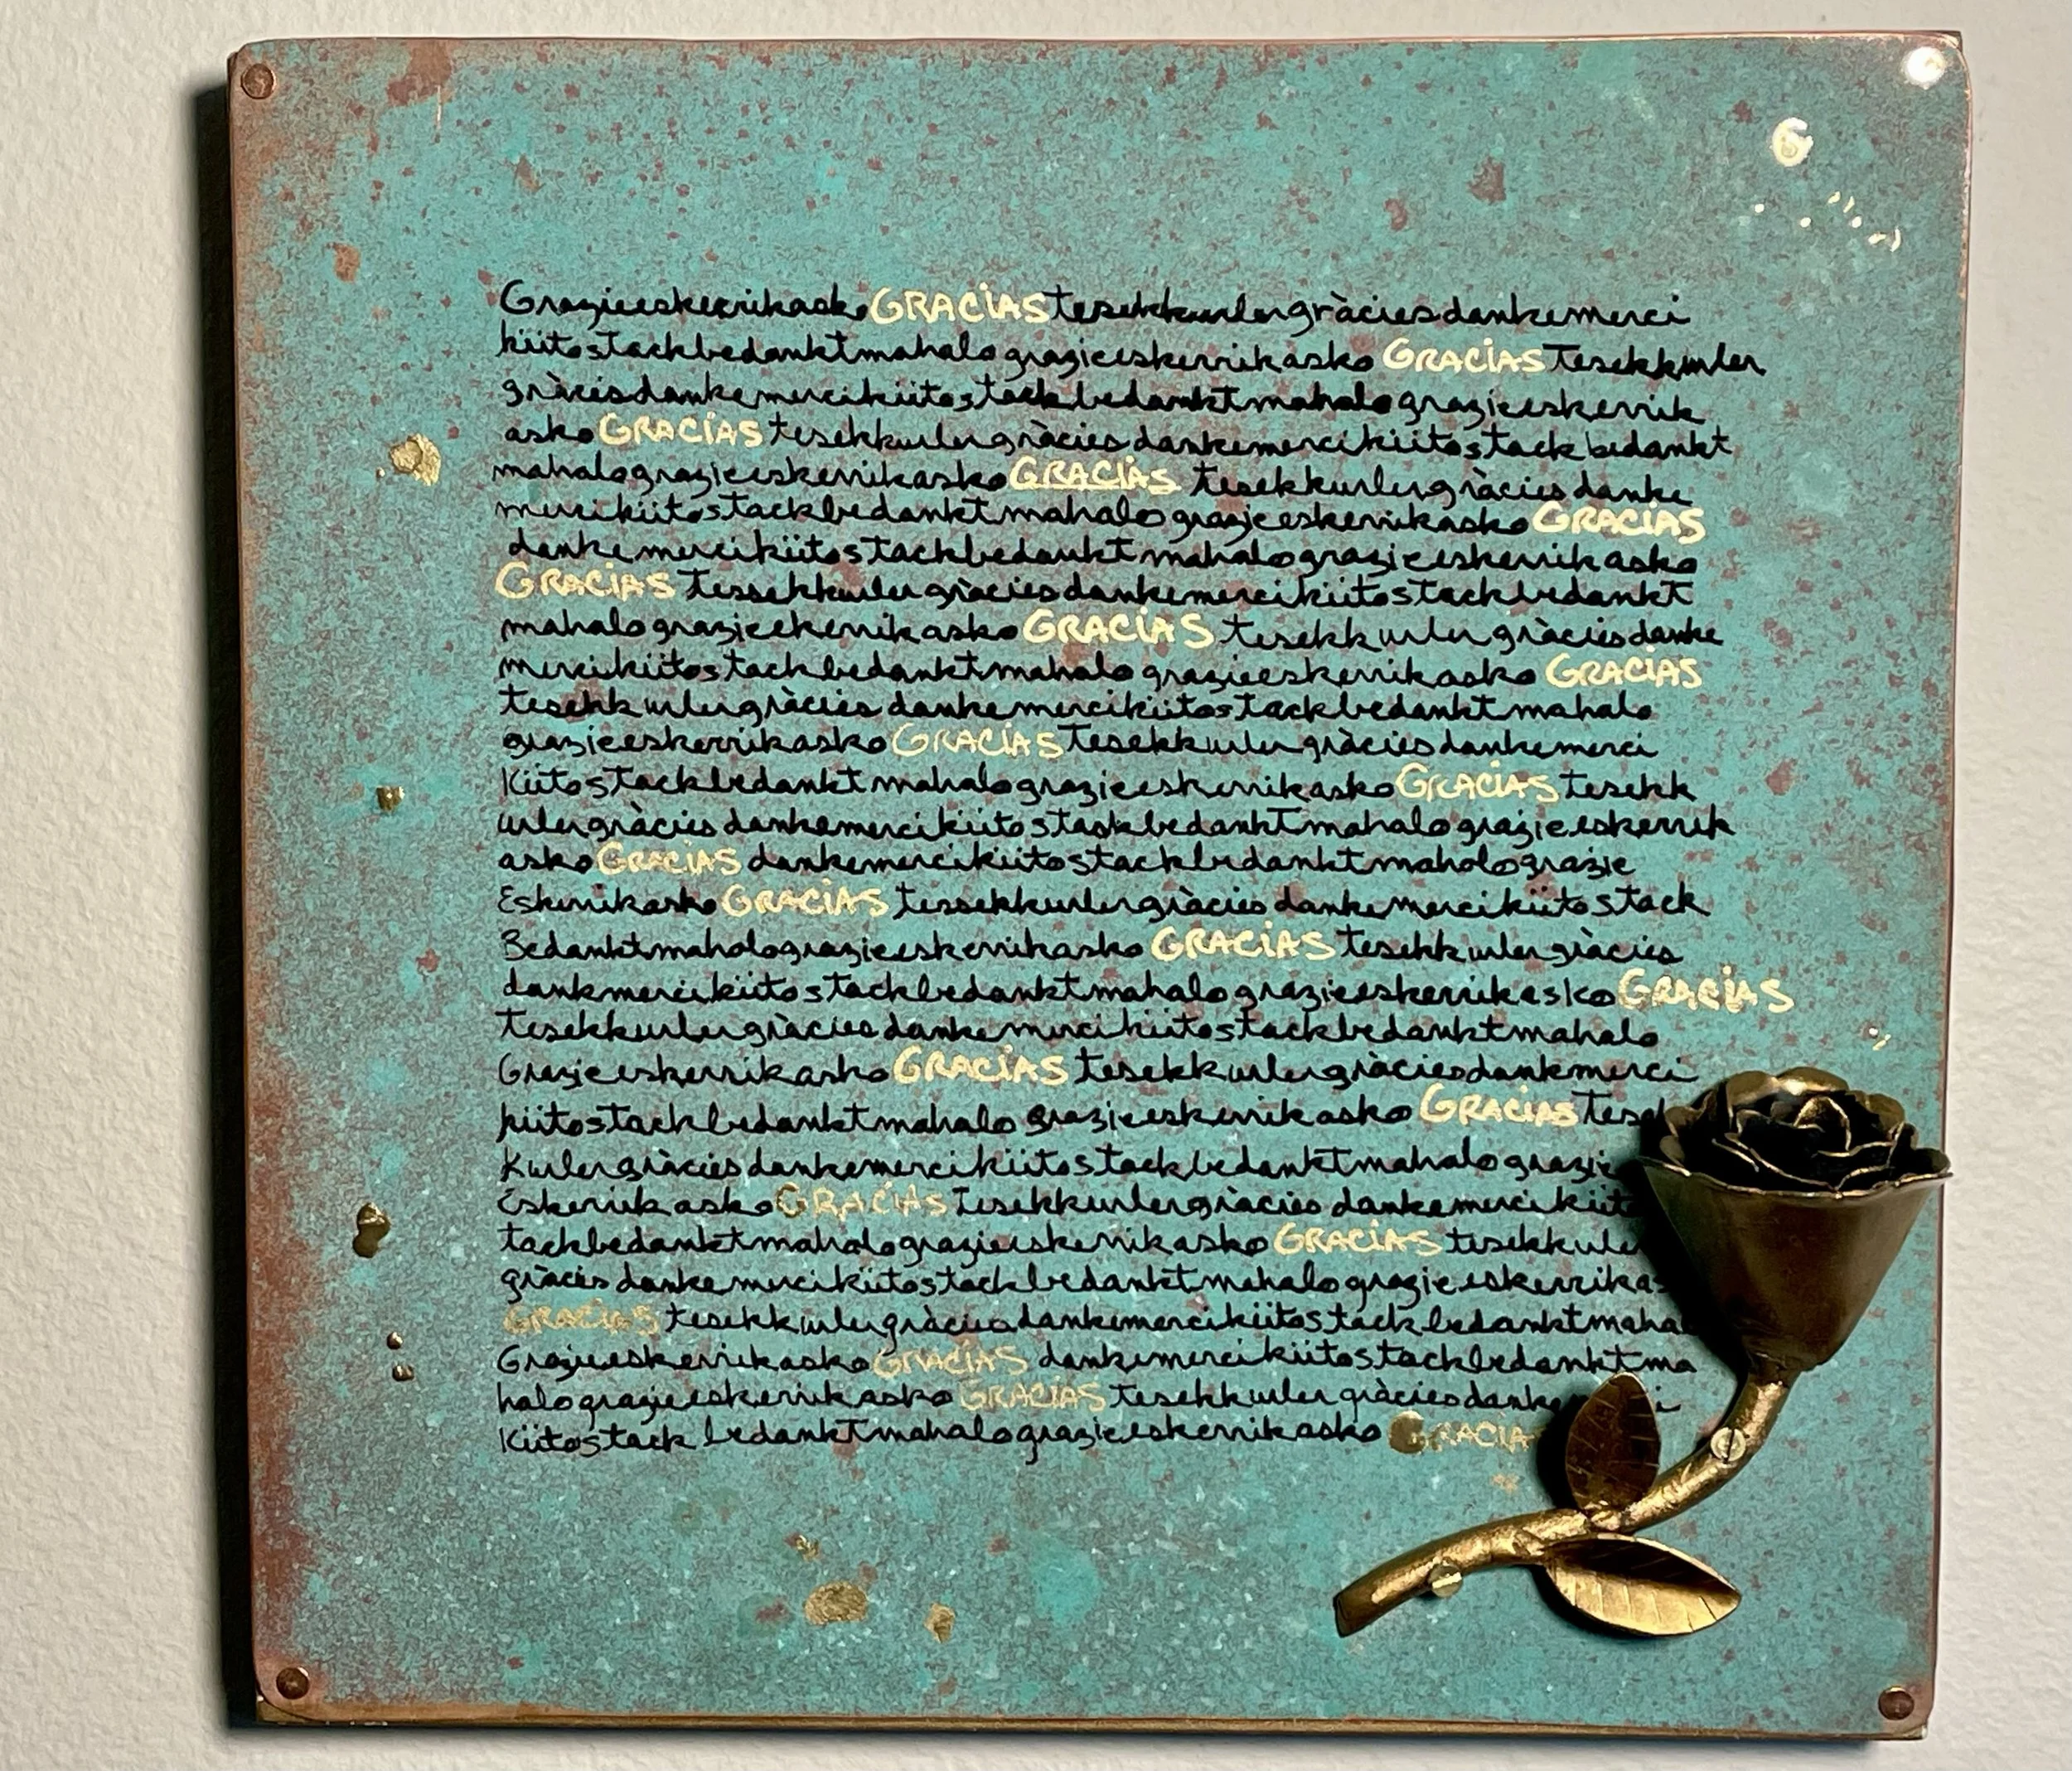 GrazieeskerrikaskoGRACiAStesekkurlergràciesdankemerci
kiitostackbedanktmahalograzieeskerrikasko GRACiAStesekkurler
gràciesdankemercikiitostackbedanktmahalograzieeskerrik
askoGRACiAS tesekkurlergràciesdankemercikiitostackbedankt
mahalograzieeskerrikaskoGRACiAS tesekkurlergràciesdanke
mercikiitostackbedanktmahalograzieeskerrikaskoGRACiAS
dankemercikiitostackbedanktmahalograzieeskerrikasko
GRACiAS tessekkurlergràciesdankemercikiitostackbedankt
mahalograzieekerrikaskoGRACiAS tesekkurlergràciesdanke
mercikiitostackbedanktmahalograzieeskerrikasko GRACiAS
tesekkurlergràciesdankemercikiitostackbedanktmahalo
grazieeskerrikaskoGRACiAStesekkurlergràciesdankemerci
KiitostackbedanktmahalograzieeskerrikaskoGRACiAStesekk
urlergràciesdankemercikiitostackbedanktmahalograzieeskerrik
askoGRACiAS dankemercikiitostackbedanktmahalograzie
EskerrikaskoGRACiAS tessekkurlergràciesdankemercikiitostack
BedanktmahalograzieeskerrikaskoGRACiAStesekkurlergràcies
dankmercikiitostackbedanktmahalograzieeskerrikaskoGRACiAS
tesekkurlergràciesdankemercikiitostackbedanktmahalo
GrazieeskerrikaskoGRACiAS tesekkurlergràciesdankmerci
kiitostackbedanktmahalograzieeskerrikasko GRACiAStesek
Kurlergràciesdankemercikiitostackbedanktmahalograzie
EskerrikaskoGRACiAStesekkurlergràciesdankemercikiito
tackbedanktmahalograzieeskerrikaskoGRACiAStesekkurler
gràciesdankemercikiitostackbedanktmahalograzieeskerrikas
GRACiAStesekkurlergràciesdankemercikiitostackbedanktmahal
GrazieeskerrikaskoGRACiAS dankemercikiitostackbedanktma
halograzieeskerrikaskoGRACiAStesekkurlergràciesdanke i
KiitostackbedanktmahalograzieeskerrikaskoGRACiA